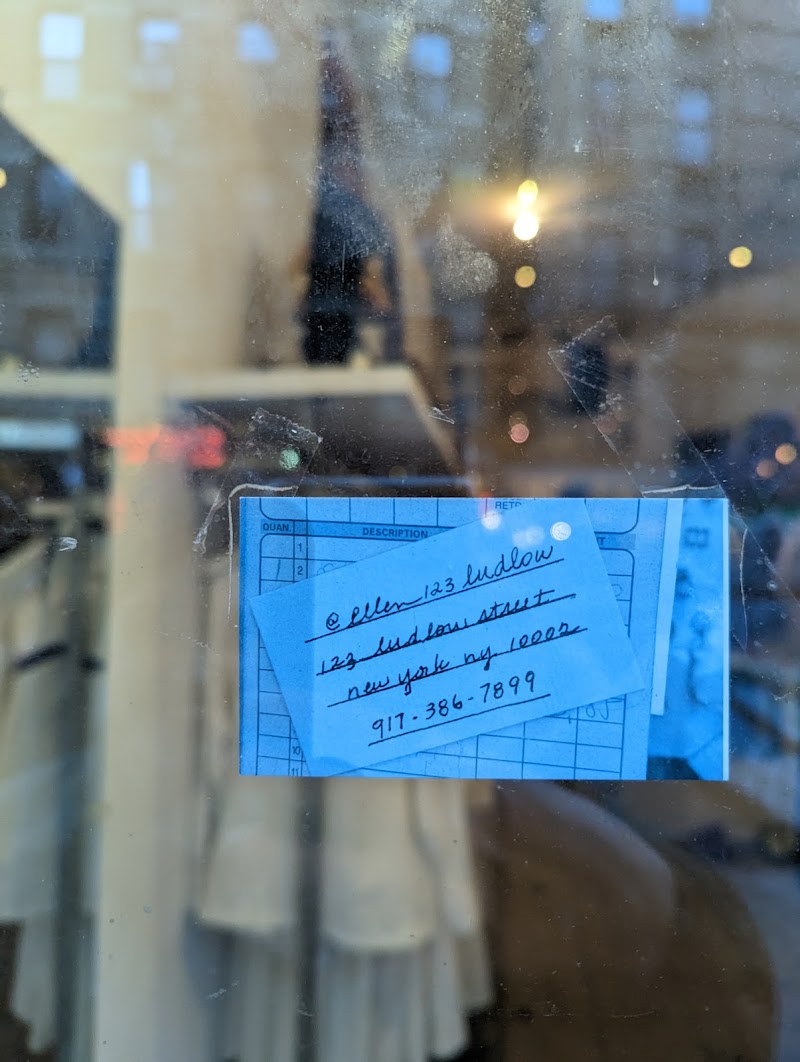 RETU
QUAN.
DESCRIPTION
1
1 2
@ellen123ludlow
123 ludlow street
new york ny 10002
917-386-7899
10
11